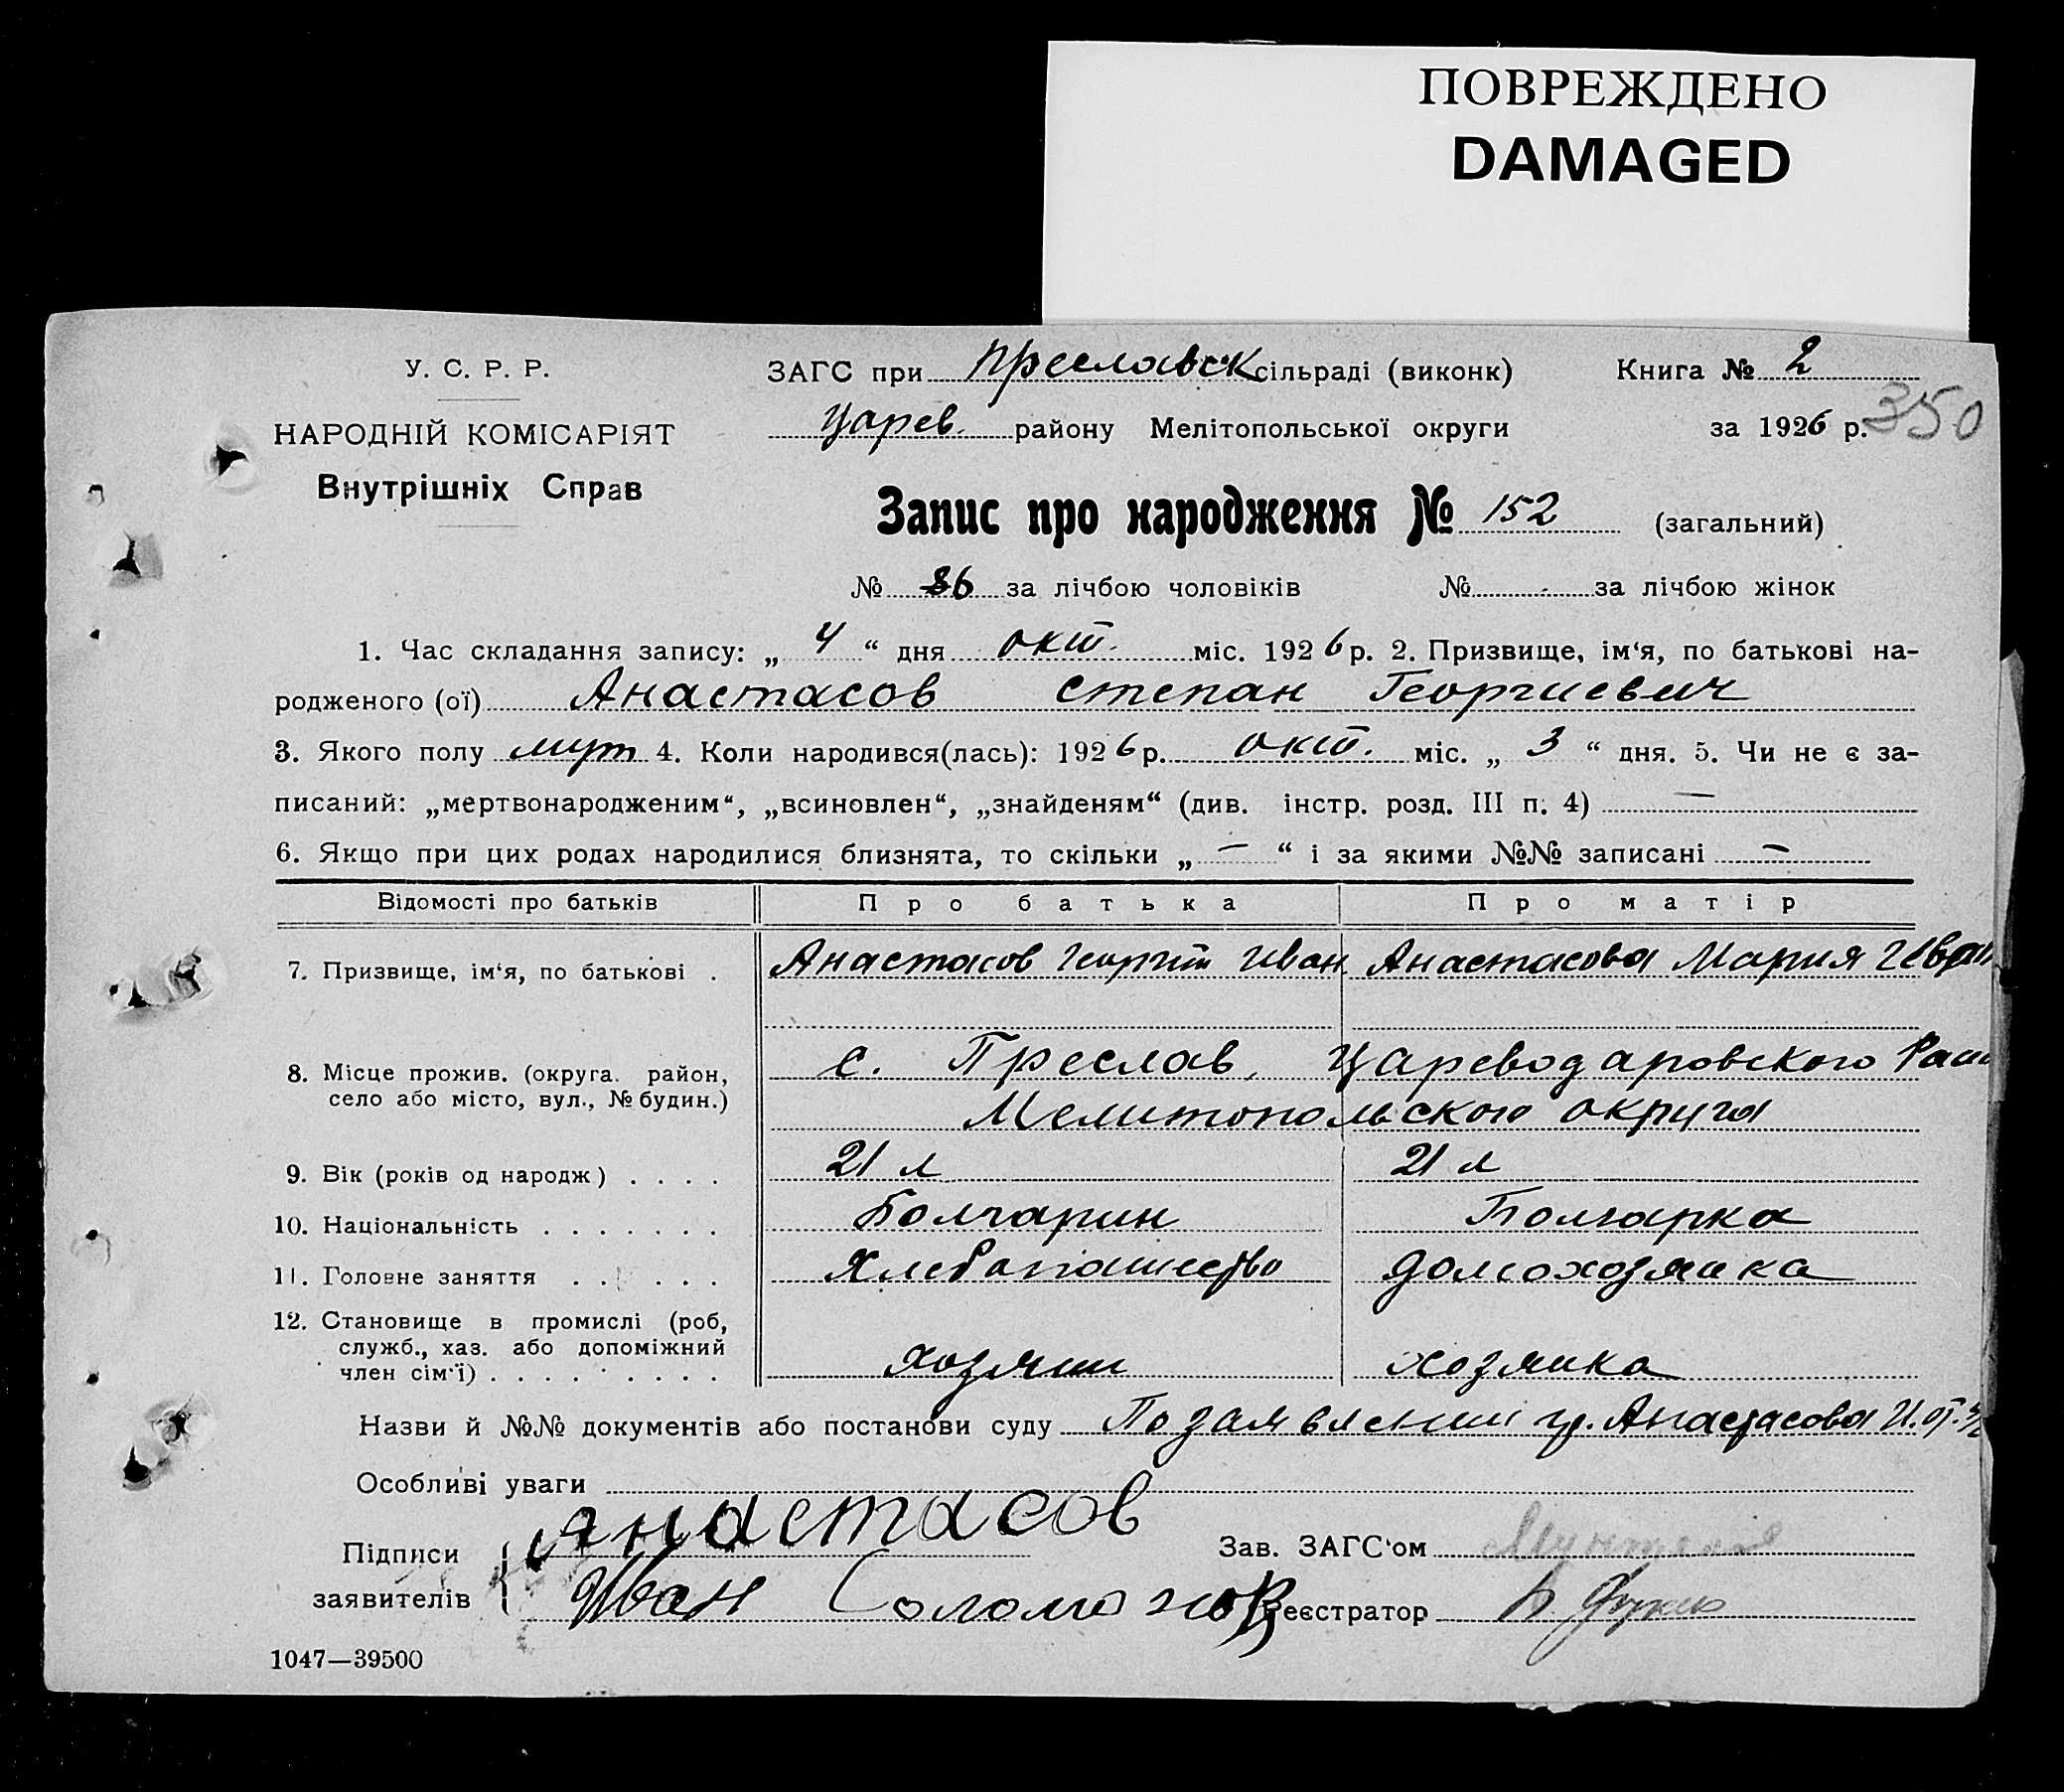 ПОВРЕЖДЕНО
DAMAGED
У. С. Р. Р.
ЗАГС при Преславск сільраді (виконк)
Книга № 2
350
НАРОДНІЙ КОМІСАРІЯТ
Царев. району Мелітопольської округи
за 1926 р.
Внутрішніх Справ
Запис про народження № 152 (загальний)
№ 86 за лічбою чоловіків № за лічбою жінок
1. Час складання запису: „ 4 “ дня окт. міс. 1926 р. 2. Призвище, ім‘я, по батькові на-
родженого (ої) Анастасов Степан Георгиевич
3. Якого полу муж 4. Коли народився(лась): 1926 р. окт. міс. „ 3 “ дня. 5. Чи не є за-
писаний: „мертвонародженим“, „всиновлен“, „знайденям“ (див. інстр. розд. III п. 4) —
6. Якщо при цих родах народилися близнята, то скільки „ — “ і за якими №№ записані —
Відомості про батьків
Про батька
Про матір
7. Призвище, ім‘я, по батькові .
Анастасов Георгий Иван
Анастасова Мария Иван
8. Місце прожив. (округа. район,
село або місто, вул., № будин.)
с. Преслав, Цареводаровского Рай
Мелитопольского округа
9. Вік (років од народж) . . . .
21 л
21 л
10. Національність . . . . . . .
Болгарин
Болгарка
11. Головне заняття . . . . . .
Хлебопашество
домохозяйка
12. Становище в промислі (роб,
служб., хаз. або допоміжний
член сім‘ї) . . . . . . . . .
хозяин
хозяйка
Назви й №№ документів або постанови суду По заявлению гр. Анастасова И. от
Особливі уваги
Підписи
заявителів
Анастасов
Иван Соломонов
Зав. ЗАГС‘ом
Реєстратор
1047—39500